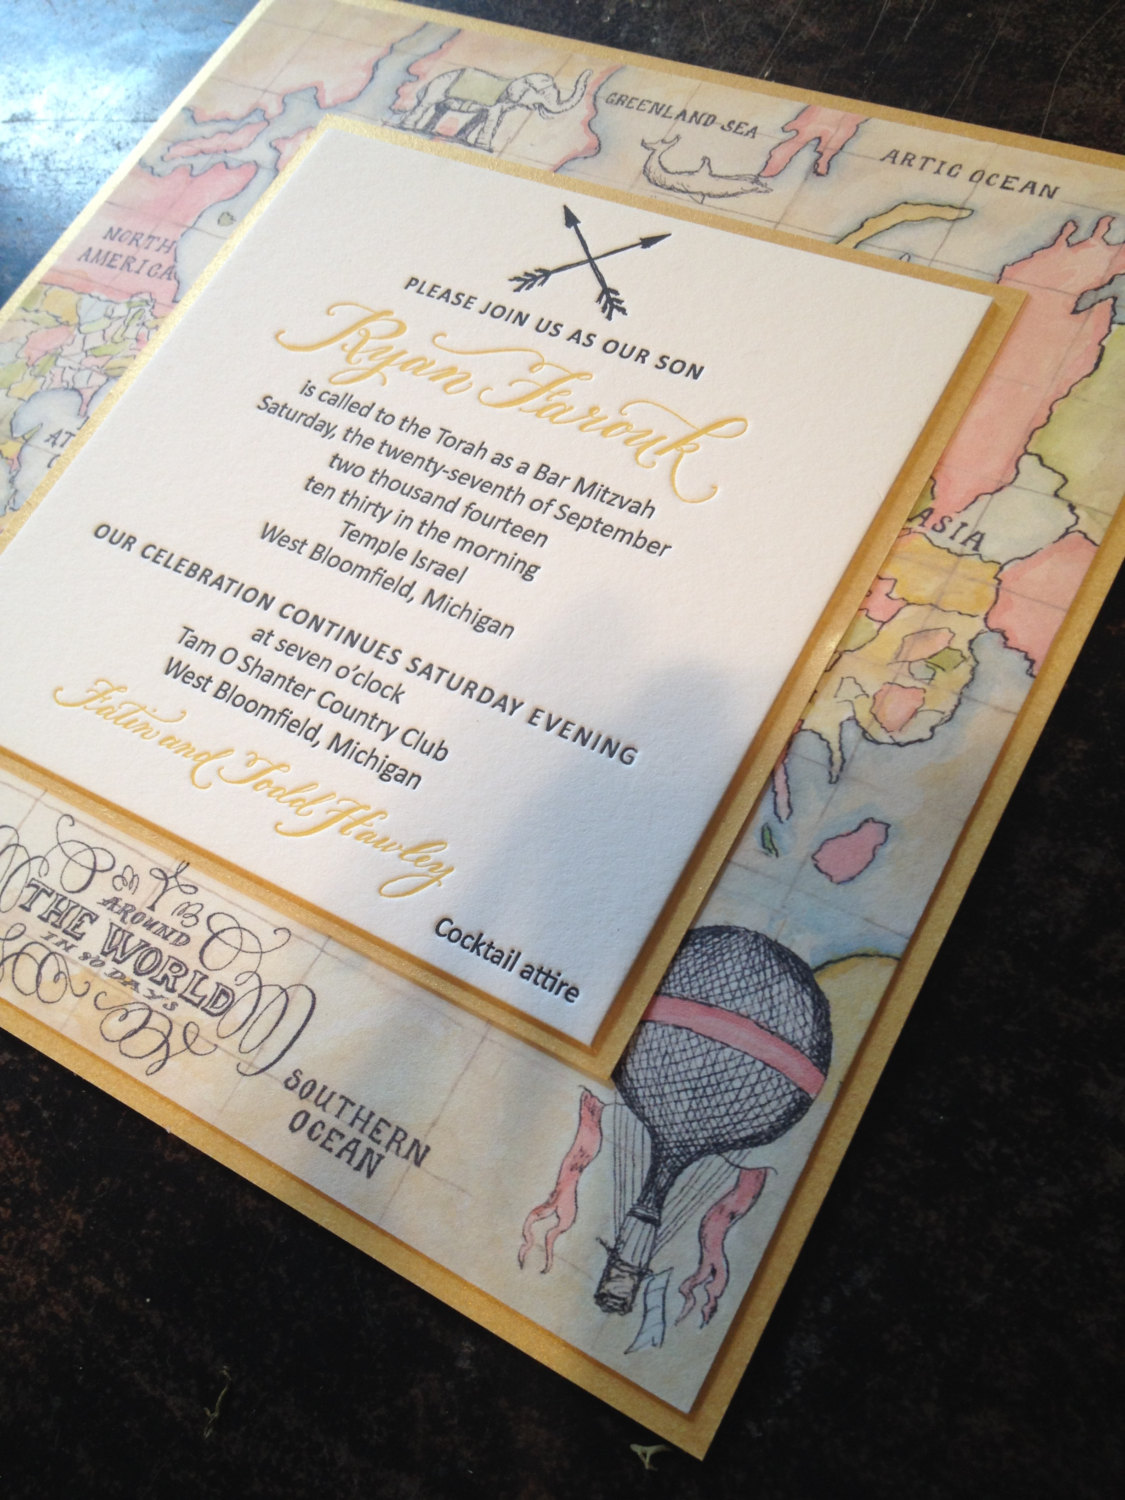 GREENLAND SEA
ARTIC OCEAN
NORTH
AMERICA
PLEASE JOIN US AS OUR SON
Ryan Farouk
is called to the Torah as a Bar Mitzvah
Saturday, the twenty-seventh of September
two thousand fourteen
ten thirty in the morning
Temple Israel
West Bloomfield, Michigan
OUR CELEBRATION CONTINUES SATURDAY EVENING
at seven o'clock
Tam O Shanter Country Club
West Bloomfield, Michigan
Fatin and Todd Hawley
Cocktail attire
ASIA
AROUND
THE WORLD
IN 90 DAYS
SOUTHERN
OCEAN